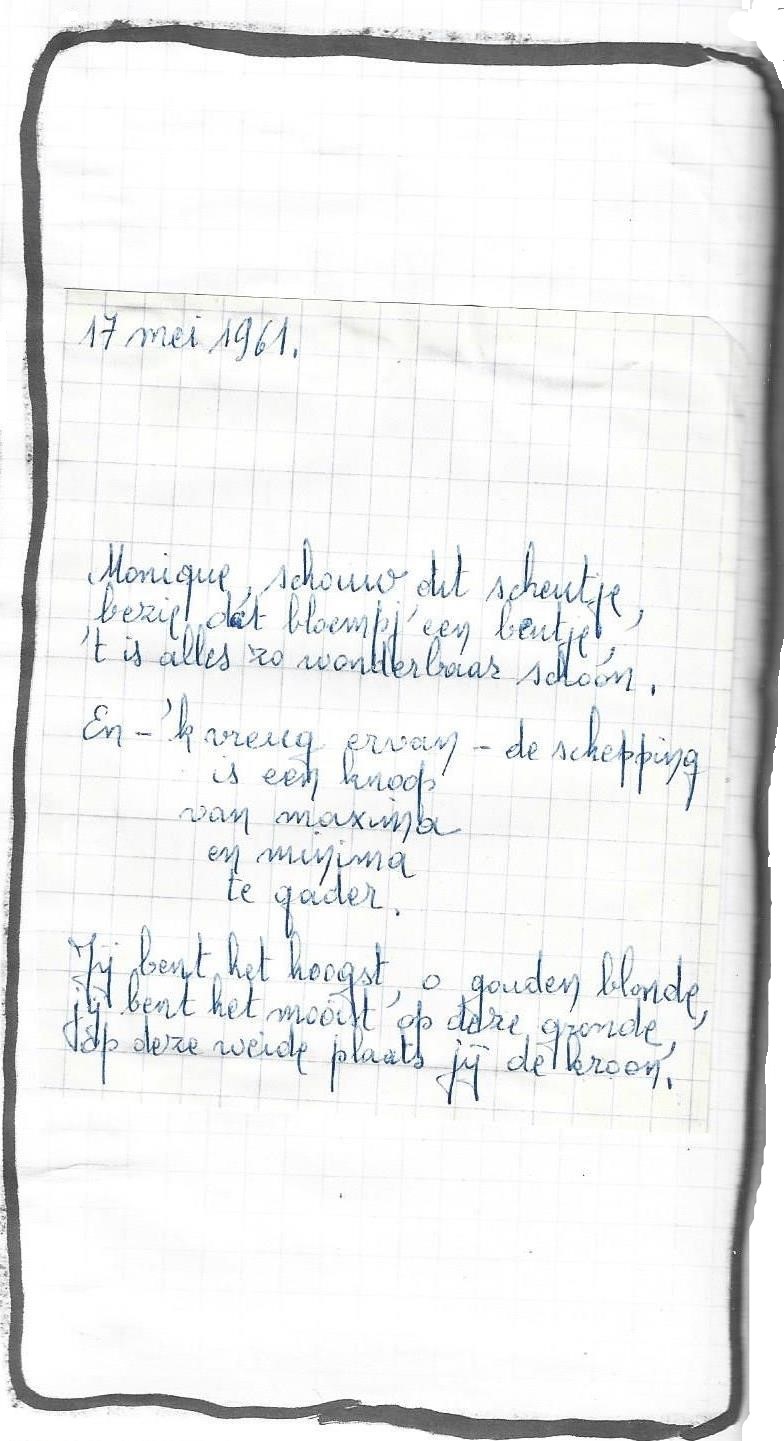 17 mei 1961.
Monique, schouw dit scheutje,
bezie dát bloempj' een beutje,
't is alles zo wonderbaar schoon.
En - 'k vreug ervan - de schepping
is een knoop
van maxima
en minima
te gader.
Jij bent het hoogst, o gouden blonde,
jij bent het mooist op deze gronde,
op deze weide plaats jij de kroon.